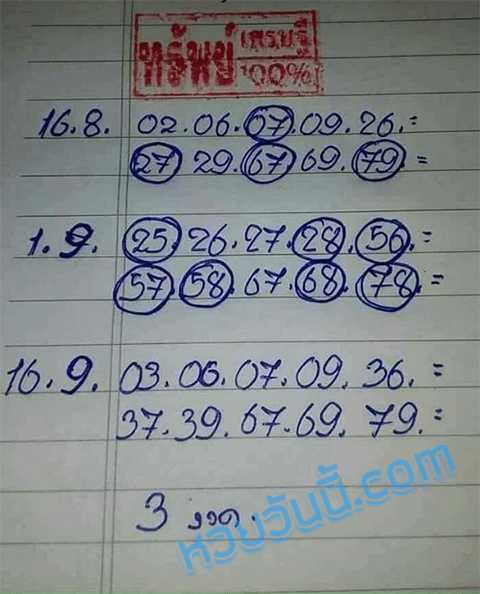 ทรัพย์เศรษฐี
100%
16.8. 02.06.07.09.26.=
27 29.67.69.79.=
1.9. 25.26.27.28.56.=
57.58.67.68.78.=
16.9. 03.06.07.09.36.=
37.39.67.69.79.=
3 งวด.
หวยวันนี้.com